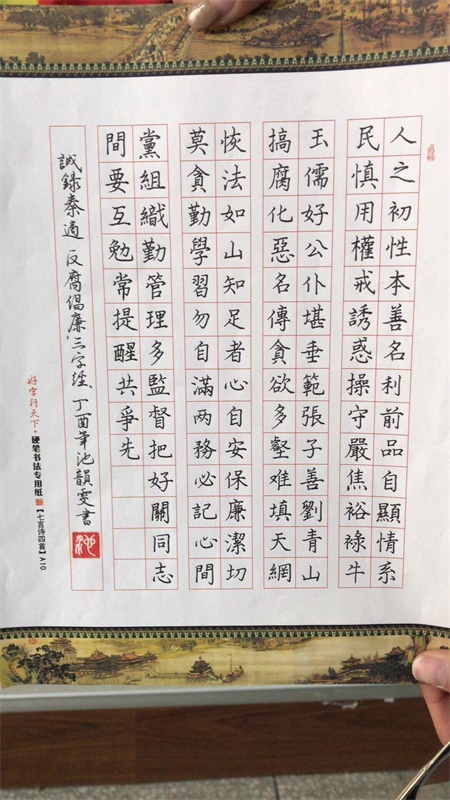 人之初性本善名利前品自顯情系
民慎用權戒誘惑操守嚴焦裕祿牛
玉儒好公仆堪垂範張子善劉青山
搞腐化惡名傳貪欲多壑难填天網
恢法如山知足者心自安保廉潔切
莫貪勤學習勿自滿两務必記心間
黨組織勤管理多監督把好關同志
間要互勉常提醒共爭先
誠録秦適反腐倡廉三字經丁酉年池韻雯書
好字行天下·硬笔书法专用纸【七言诗四首】A10